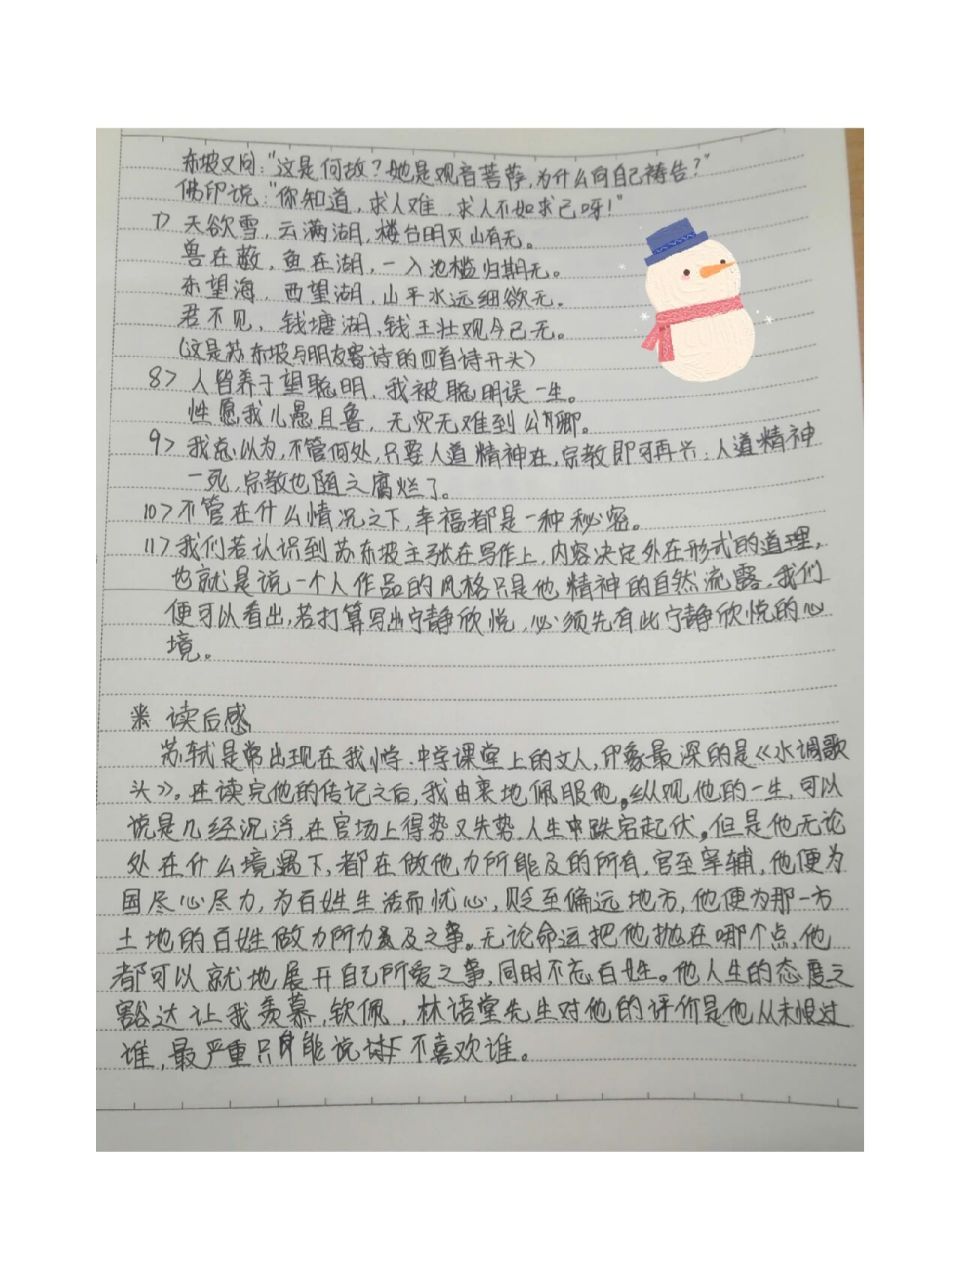 东坡又问:"这是何故?她是观音菩萨,为什么向自己祷告?"
佛印说:"你知道,求人难,求人不如求己呀!"
7> 天欲雪,云满湖,楼台明灭山有无。
兽在薮,鱼在湖,一入池槛归期无。
东望海,西望湖,山平水远细欲无。
君不见,钱塘湖,钱王壮观今已无。
(这是苏东坡与朋友寄诗的四首诗开头)
8> 人皆养子望聪明,我被聪明误一生。
性愿我儿愚且鲁,无灾无难到公卿。
9> 我总以为,不管何处,只要人道精神在,宗教即可再兴;人道精神
一死,宗教也随之腐烂了。
10> 不管在什么情况之下,幸福都是一种秘密。
11> 我们若认识到苏东坡主张在写作上,内容决定外在形式的道理,
也就是说一个人作品的风格只是他精神的自然流露,我们
便可以看出,若打算写出宁静欣悦,必须先有此宁静欣悦的心
境。
※ 读后感
苏轼是常出现在我小学、中学课堂上的文人,印象最深的是《水调歌
头》。在读完他的传记之后,我由衷地佩服他。纵观他的一生,可以
说是几经沉浮,在官场上得势又失势,人生中跌宕起伏。但是他无论
处在什么境遇下,都在做他力所能及的所有,官至宰辅,他便为
国尽心尽力,为百姓生活而忧心,贬至偏远地方,他便为那一方
土地的百姓做力所力能及之事。无论命运把他抛在哪个点,他
都可以就地展开自己所爱之事,同时不忘百姓。他人生的态度之
豁达让我羡慕,钦佩,林语堂先生对他的评价是他从未恨过
谁,最严重只能说讨厌不喜欢谁。